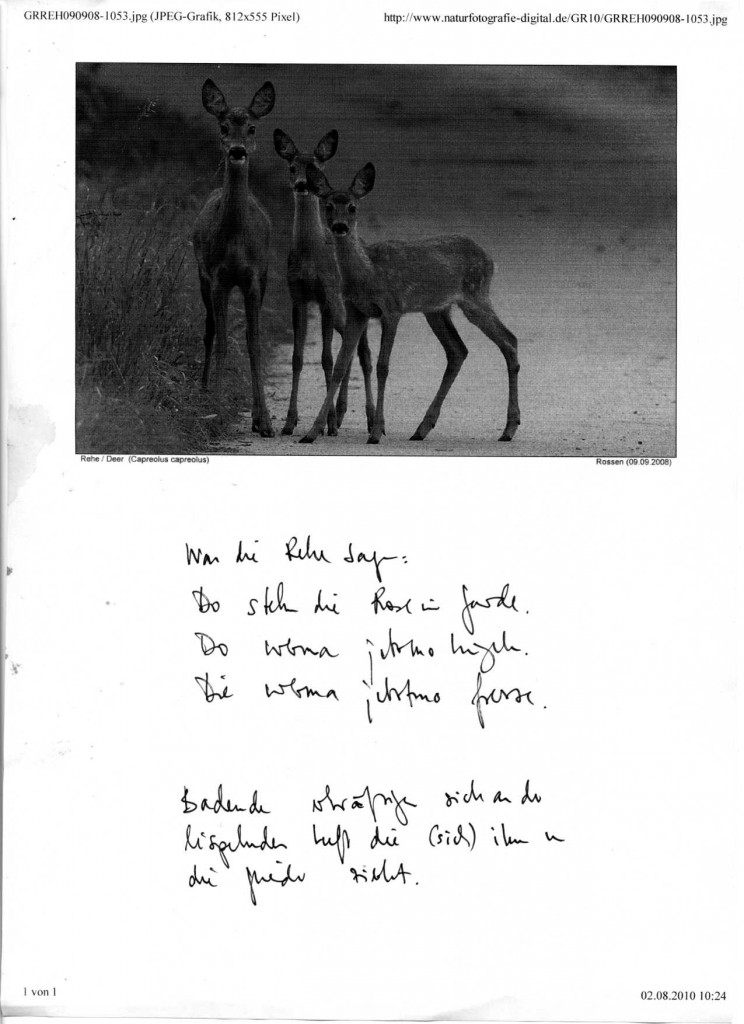 GRREH090908-1053.jpg (JPEG-Grafik, 812x555 Pixel)
http://www.naturfotografie-digital.de/GR10/GRREH090908-1053.jpg
Rehe / Deer (Capreolus capreolus)
Rossen (09.09.2008)
Was die Rehe sagen:
Do stehn die Rose im Garde.
Do wemma jetzmo
Die wemma jetztmo fresse.
Badende sich an der
lispelnden Luft die (sich) ihm in
die zieht.
1 von 1
02.08.2010 10:24